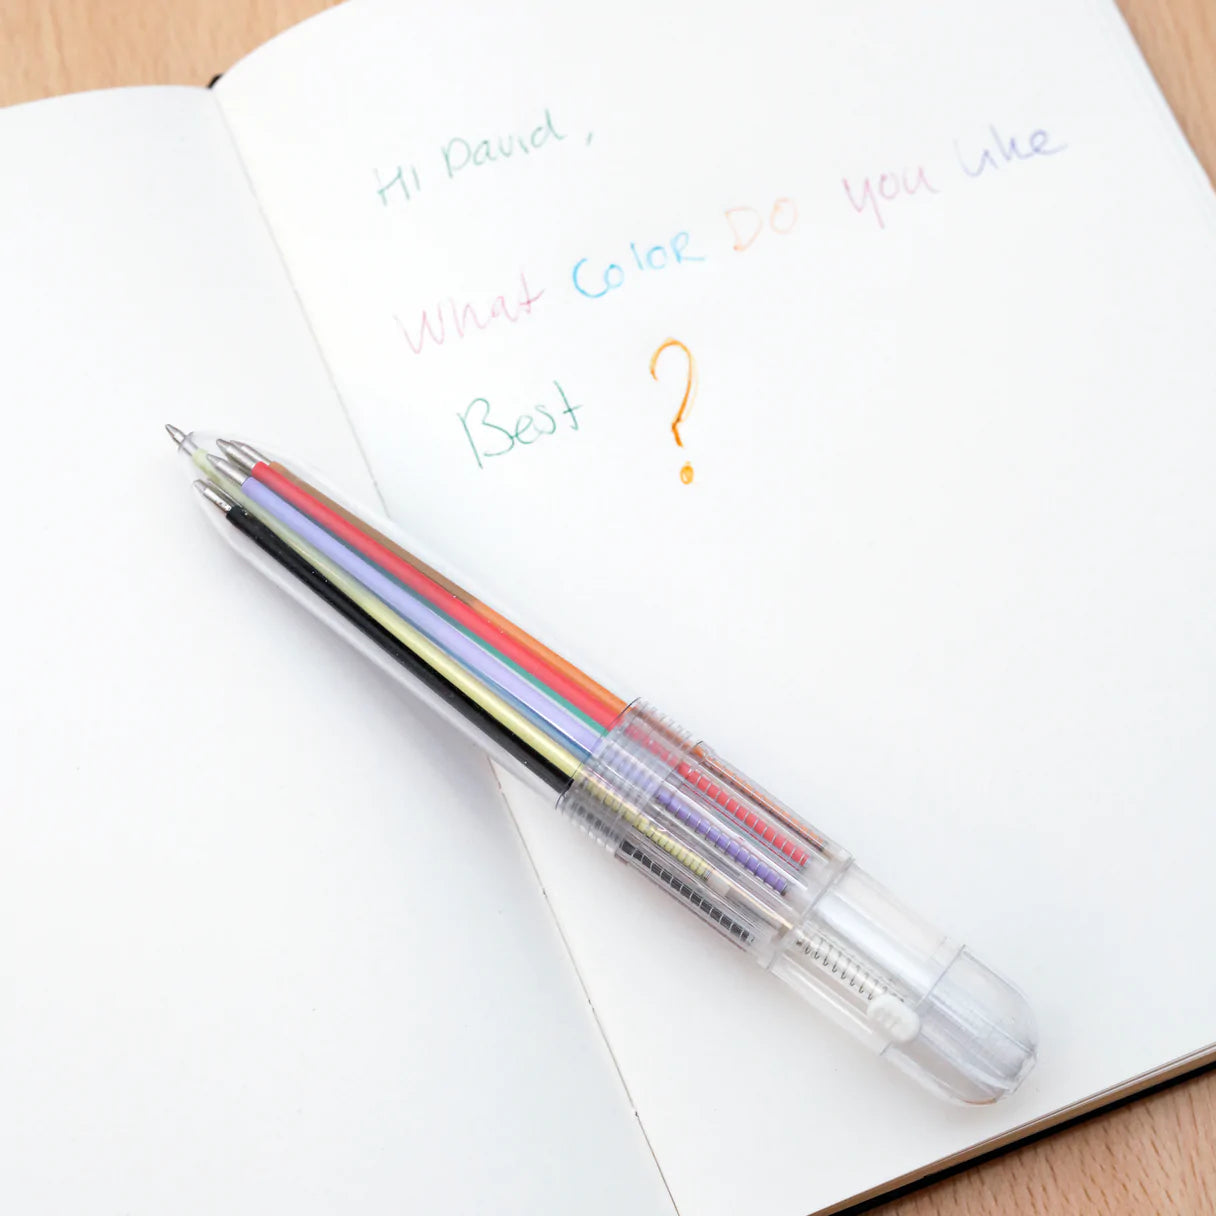 Hi David,
What Color Do you like
Best ?